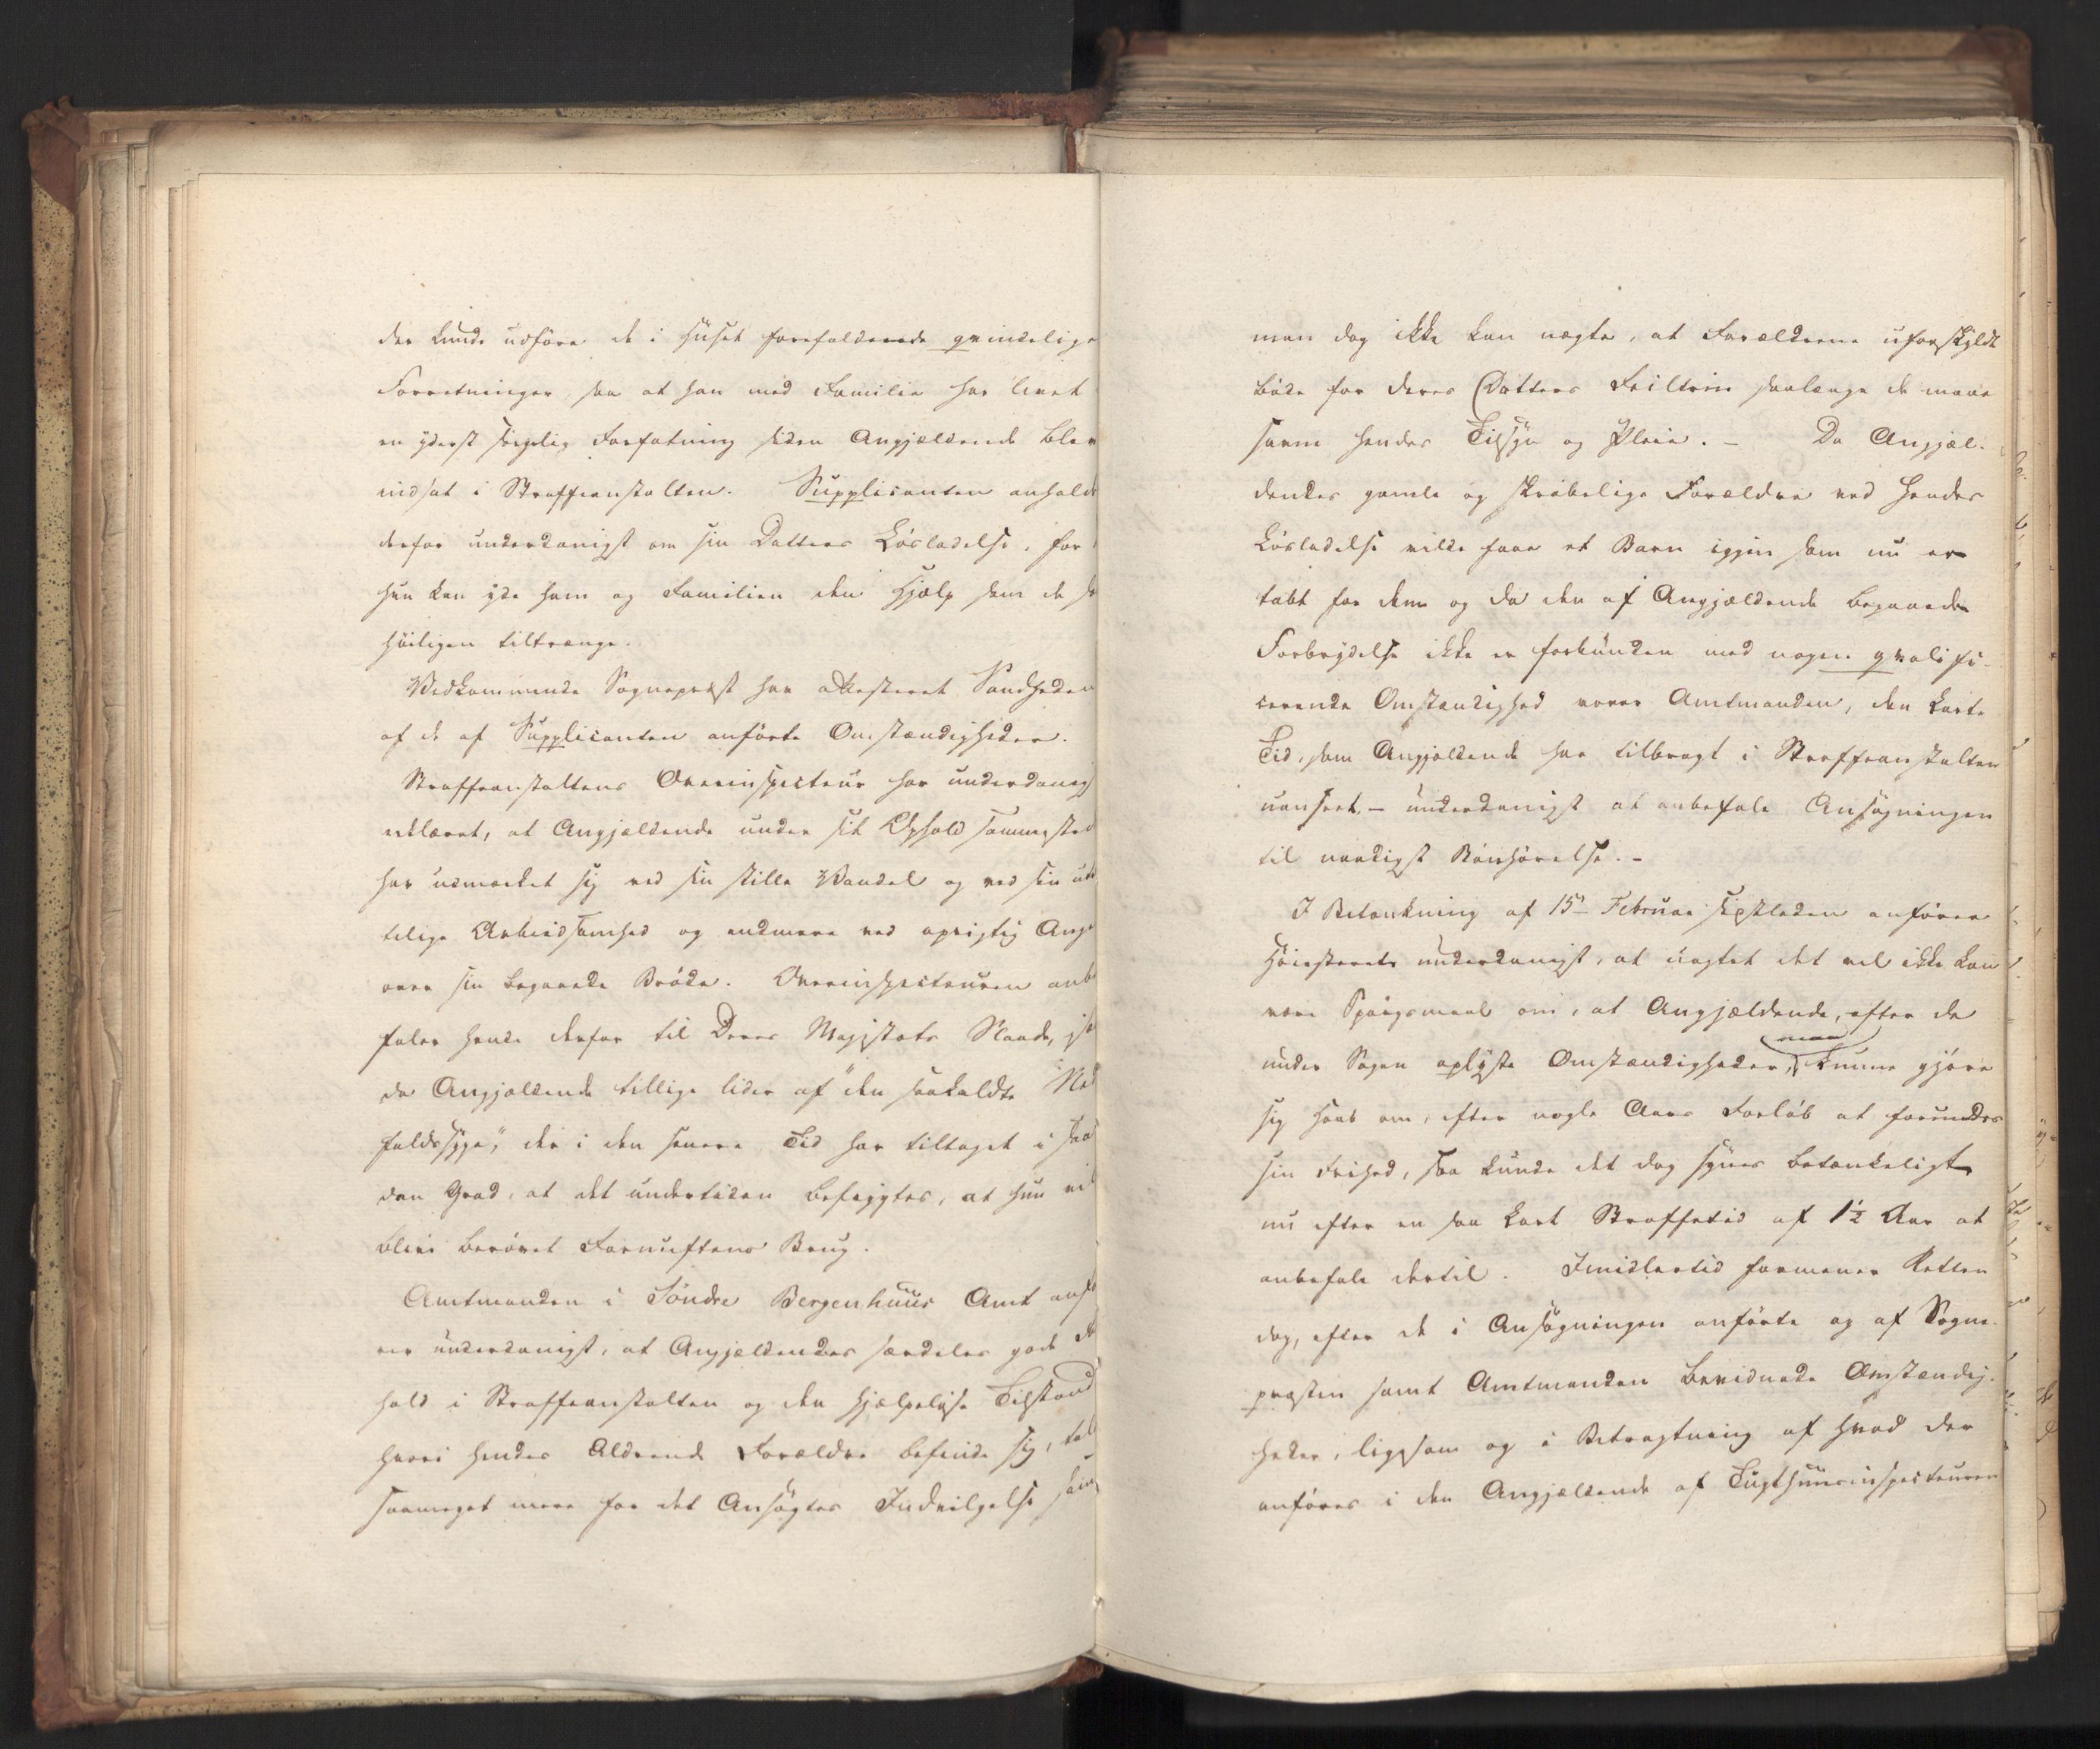 der kunde udføre de i Huset forefaldende qvindelige
Forretninger, saa at han med Familie har levet
en yderst sørgelig Forfatning siden Angjældende blev
indsat i Straffeanstalten. Supplicanten anhold
derfor underdanigst om sin Datters Løsladelse, for
hun kan yde ham og Familien den Hjælp som de saa
høiligen tiltrænge.
Vedkommende Sognepræst har attesteret Sandheden
af de af Supplicanten anførte Omstændigheder.
Straffeanstaltens Overinspecteur har underdanigst
erklæret, at Angjældende under sit Ophold sammested
har udmærket sig ved sin stille Vandel og ved sin
Arbeidsomhed og endmere ved oprigtig Anger
over sin begaaede Brøde. Overinspecteuren anbe
faler hende derfor til Deres Majestæts Naade,
da Angjældende tillige lider af "den saakaldte Ned
faldssyge," der i den senere Tid har tiltaget i saa
dan Grad, at det undertiden befrygtes, at hun vil
blive berøvet Fornuftens Brug.
Amtmanden i Søndre Bergenhuus Amt anfø
rer underdanigst, at Angjældendes særdeles gode
hold i Straffeanstalten og den hjælpeløse Tilstand
hvori hendes Aldrende Forældre befinde sig, tal
saameget mere for det Ansøgtes Indvilgelse som
man dog ikke kan nægte, at Forældrene uforskyldt
bøde for deres Datters Feiltrin saalænge de maae
savne hendes Tilsyn og Pleie. - Da Angjæl-
dendes gamle og skrøbelige Forældre ved hendes
Løsladelse vilde faae et Barn igjen som nu er
tabt for dem og da den af Angjældende begaaede
Forbrydelse ikke er forbunden med nogen qvalifi-
cerende Omstændighed vover Amtmanden, den korte
Tid, som Angjældende har tilbragt i Straffeanstalten
uanseet, - underdanigst at anbefale Ansøgningen
til naadigst Bønhørelse. -
I Betænkning af 15de Februar sidstleden anfører
Høiesteret underdanigst, at uagtet det vel ikke kan
være Spørgsmaal om, at Angjældende, efter de
under Sagen oplyste Omstændigheder, maa kunne gjøre
sig Haab om, efter nogle Aars Forløb at forundes
sin Frihed, saa kunde det dog synes betænkeligt
nu efter en saa kort Straffetid af 1½ Aar at
anbefale dertil. Imidlertid formener Retten
dog, efter de i Ansøgningen anførte og af Sogne-
præsten samt Amtmanden bevidnede Omstændig-
heder, ligesom og i Betragtning af hvad der
anføres i den Angjældende af Tugthuusinspecteuren